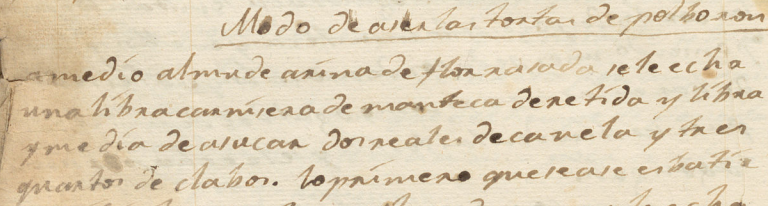 Modo de aser las tortas de polboron
a medio almu de arina de flor rasada se le echa
una libra carnisera de manteca deretida y libra
y media de asucar dos reales de canela y tres
quartos de clabos. lo primero que se ase es batir